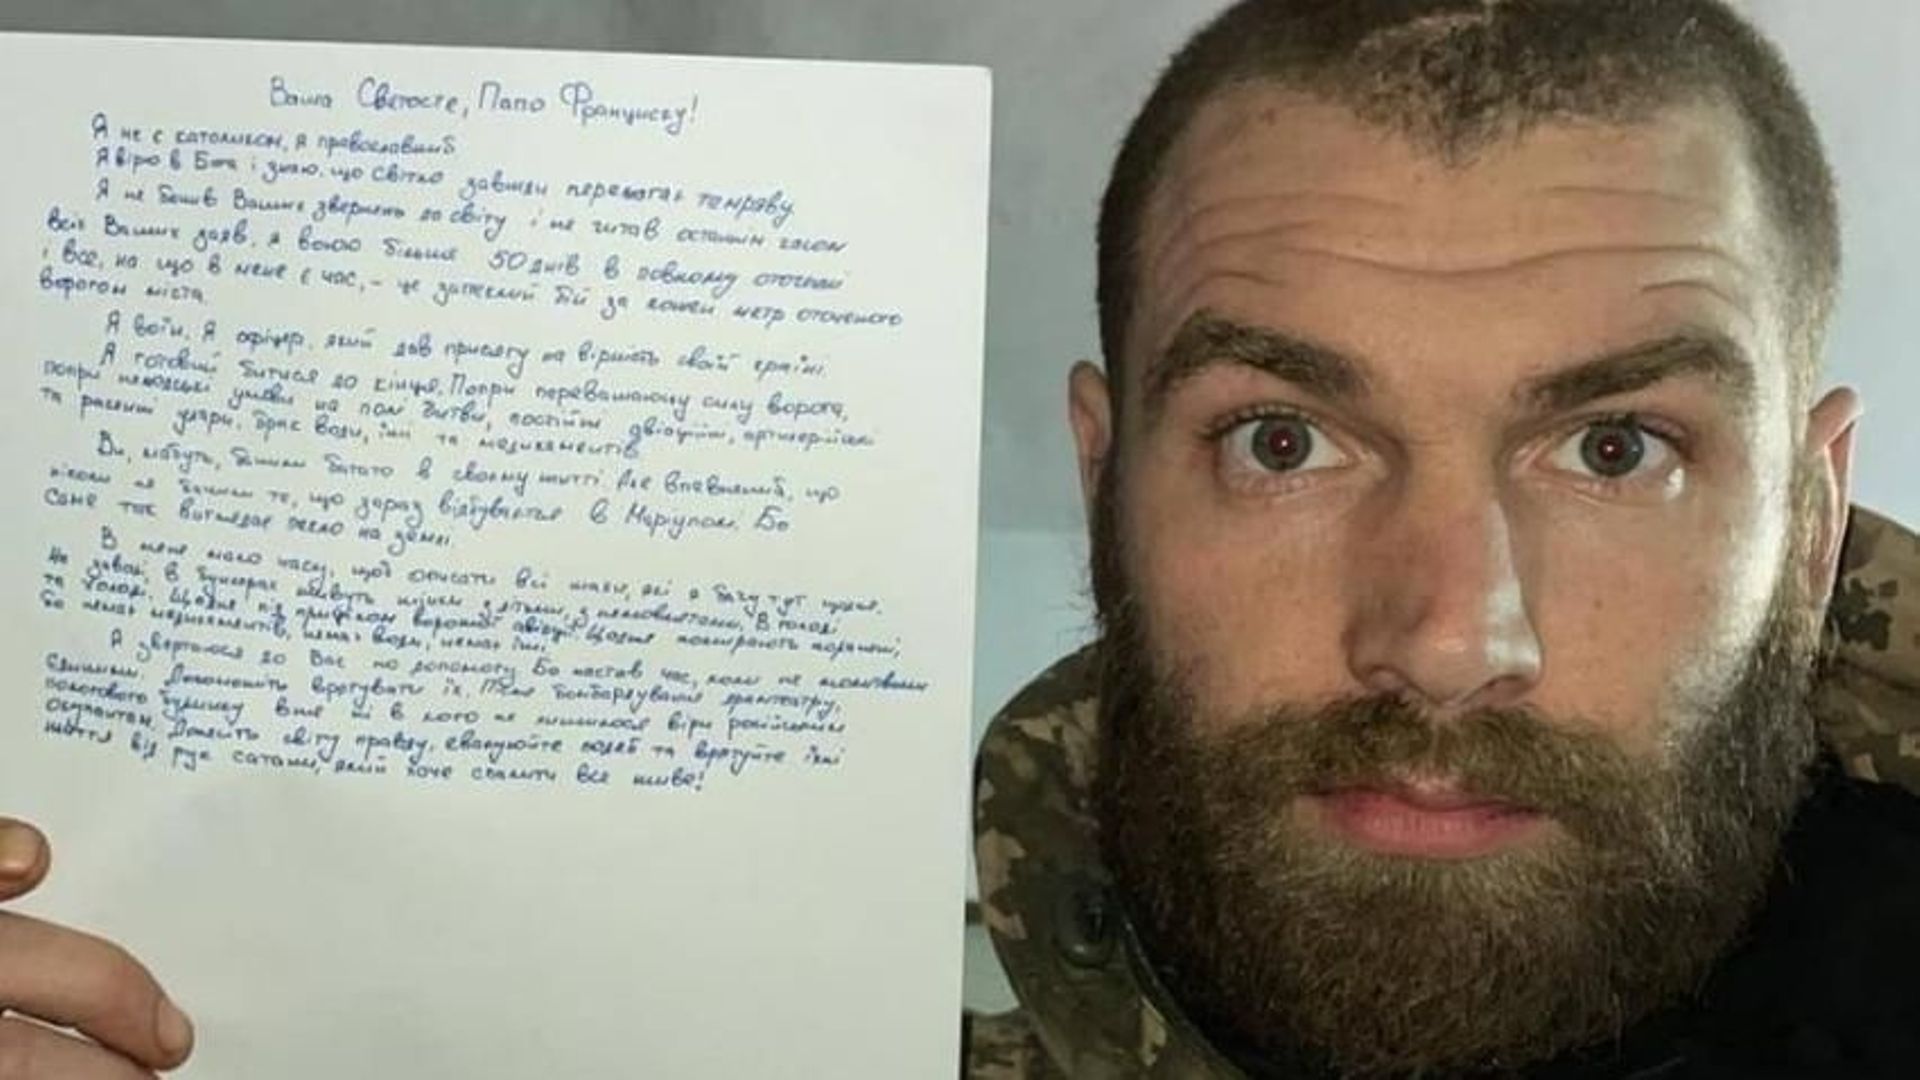 Ваша Святосте, Папо Франциску!
Я не є католиком, я православний
Я вірю в Бога і знаю, що світло завжди перемагає темряву.
Я не бачив Ваших звернень до світу і не читав останнім часом
всіх Ваших заяв, я воюю більше 50 днів в повному оточенні
і все, на що в мене є час, - це запеклий бій за кожен метр оточеного
ворогом міста.
Я воїн. Я офіцер, який дав присягу на вірність своїй країні.
Я готовий битися до кінця. Попри переважаючу силу ворога,
попри нелюдські умови на полі битви, постійні авіаційні, артилерійські
та ракетні удари, брак води, їжі та медикаментів.
Ви, мабуть, бачили багато в своєму житті. Але впевнений, що
ніколи не бачили те, що зараз відбувається в Маріуполі. Бо
саме так виглядає пекло на землі.
В мене мало часу, щоб описати всі жахи, які я бачу тут щодня.
На заводі в бункерах живуть жінки з дітьми, з немовлятами. В голоді
та холоді. Щодня під прицілом ворожої авіації. Щодня помирають поранені,
бо немає медикаментів, немає води, немає їжі.
Я звертаюся до Вас по допомогу. Бо настав час, коли не молитвами
єдиними. Допоможіть врятувати їх. Після бомбардування драмтеатру,
пологового будинку вже ні в кого не лишилося віри російським
окупантам. Донесіть світу правду, евакуюйте людей та врятуйте їхні
життя від рук сатани, який хоче спалити все живе!